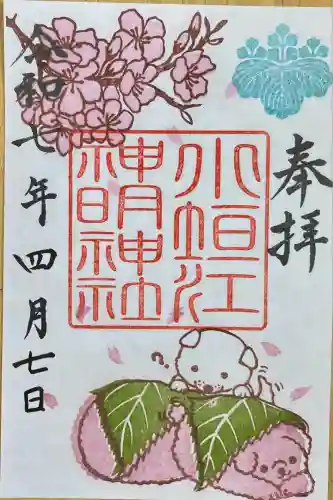 奉拝
小垣江
神明神社
令和七年四月七日
?